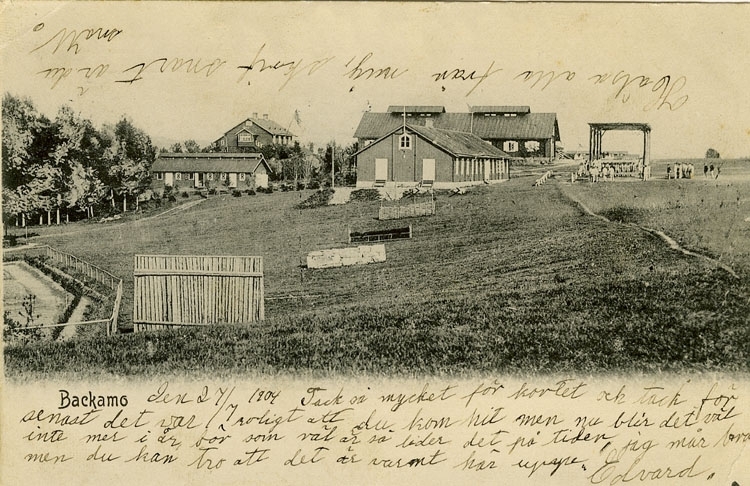 Hälsa alla från mig, skrif snart är du
snäll.
Backamo Den 24/7 1904 Tack så mycket för kortet och tack för
senast det var roligt att du kom hit men nu blir det väl
inte mer i år, som väl är så lider det på tiden, jag mår bra
men du kan tro att det är varmt här uppe. Edvard.